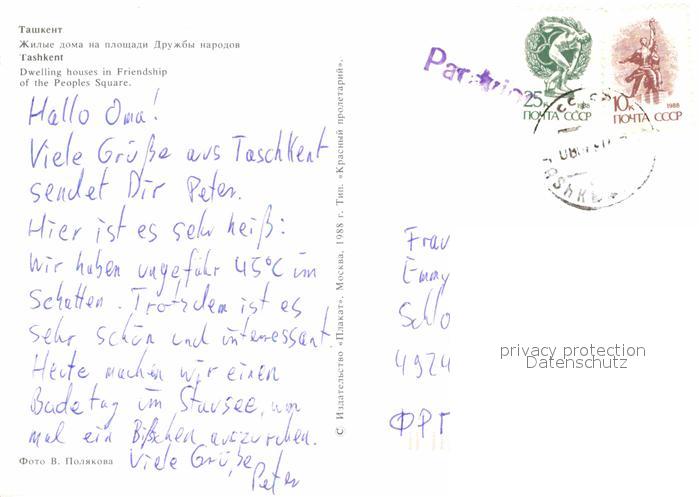 Ташкент
Жилые дома на площади Дружбы народов
Tashkent
Dwelling houses in Friendship
of the Peoples Square.
Hallo Oma!
Viele Grüße aus Taschkent
sendet Dir Peter.
Hier ist es sehr heiß:
Wir haben ungefähr 45°C im
Schatten. Trotzdem ist es
sehr schön und interessant.
Heute machen wir einen
Badetag im Stausee, um
mal ein Bißchen auszuruhen.
Viele Grüße
Peter
Фото В. Полякова
© Издательство «Плакат», Москва, 1988 г. Тип. «Красный пролетарий».
Par avion
25к 1988
ПОЧТА СССР
10к 1988
ПОЧТА СССР
Frau
Emmy
Schlo
4924
ФРГ
privacy protection
Datenschutz